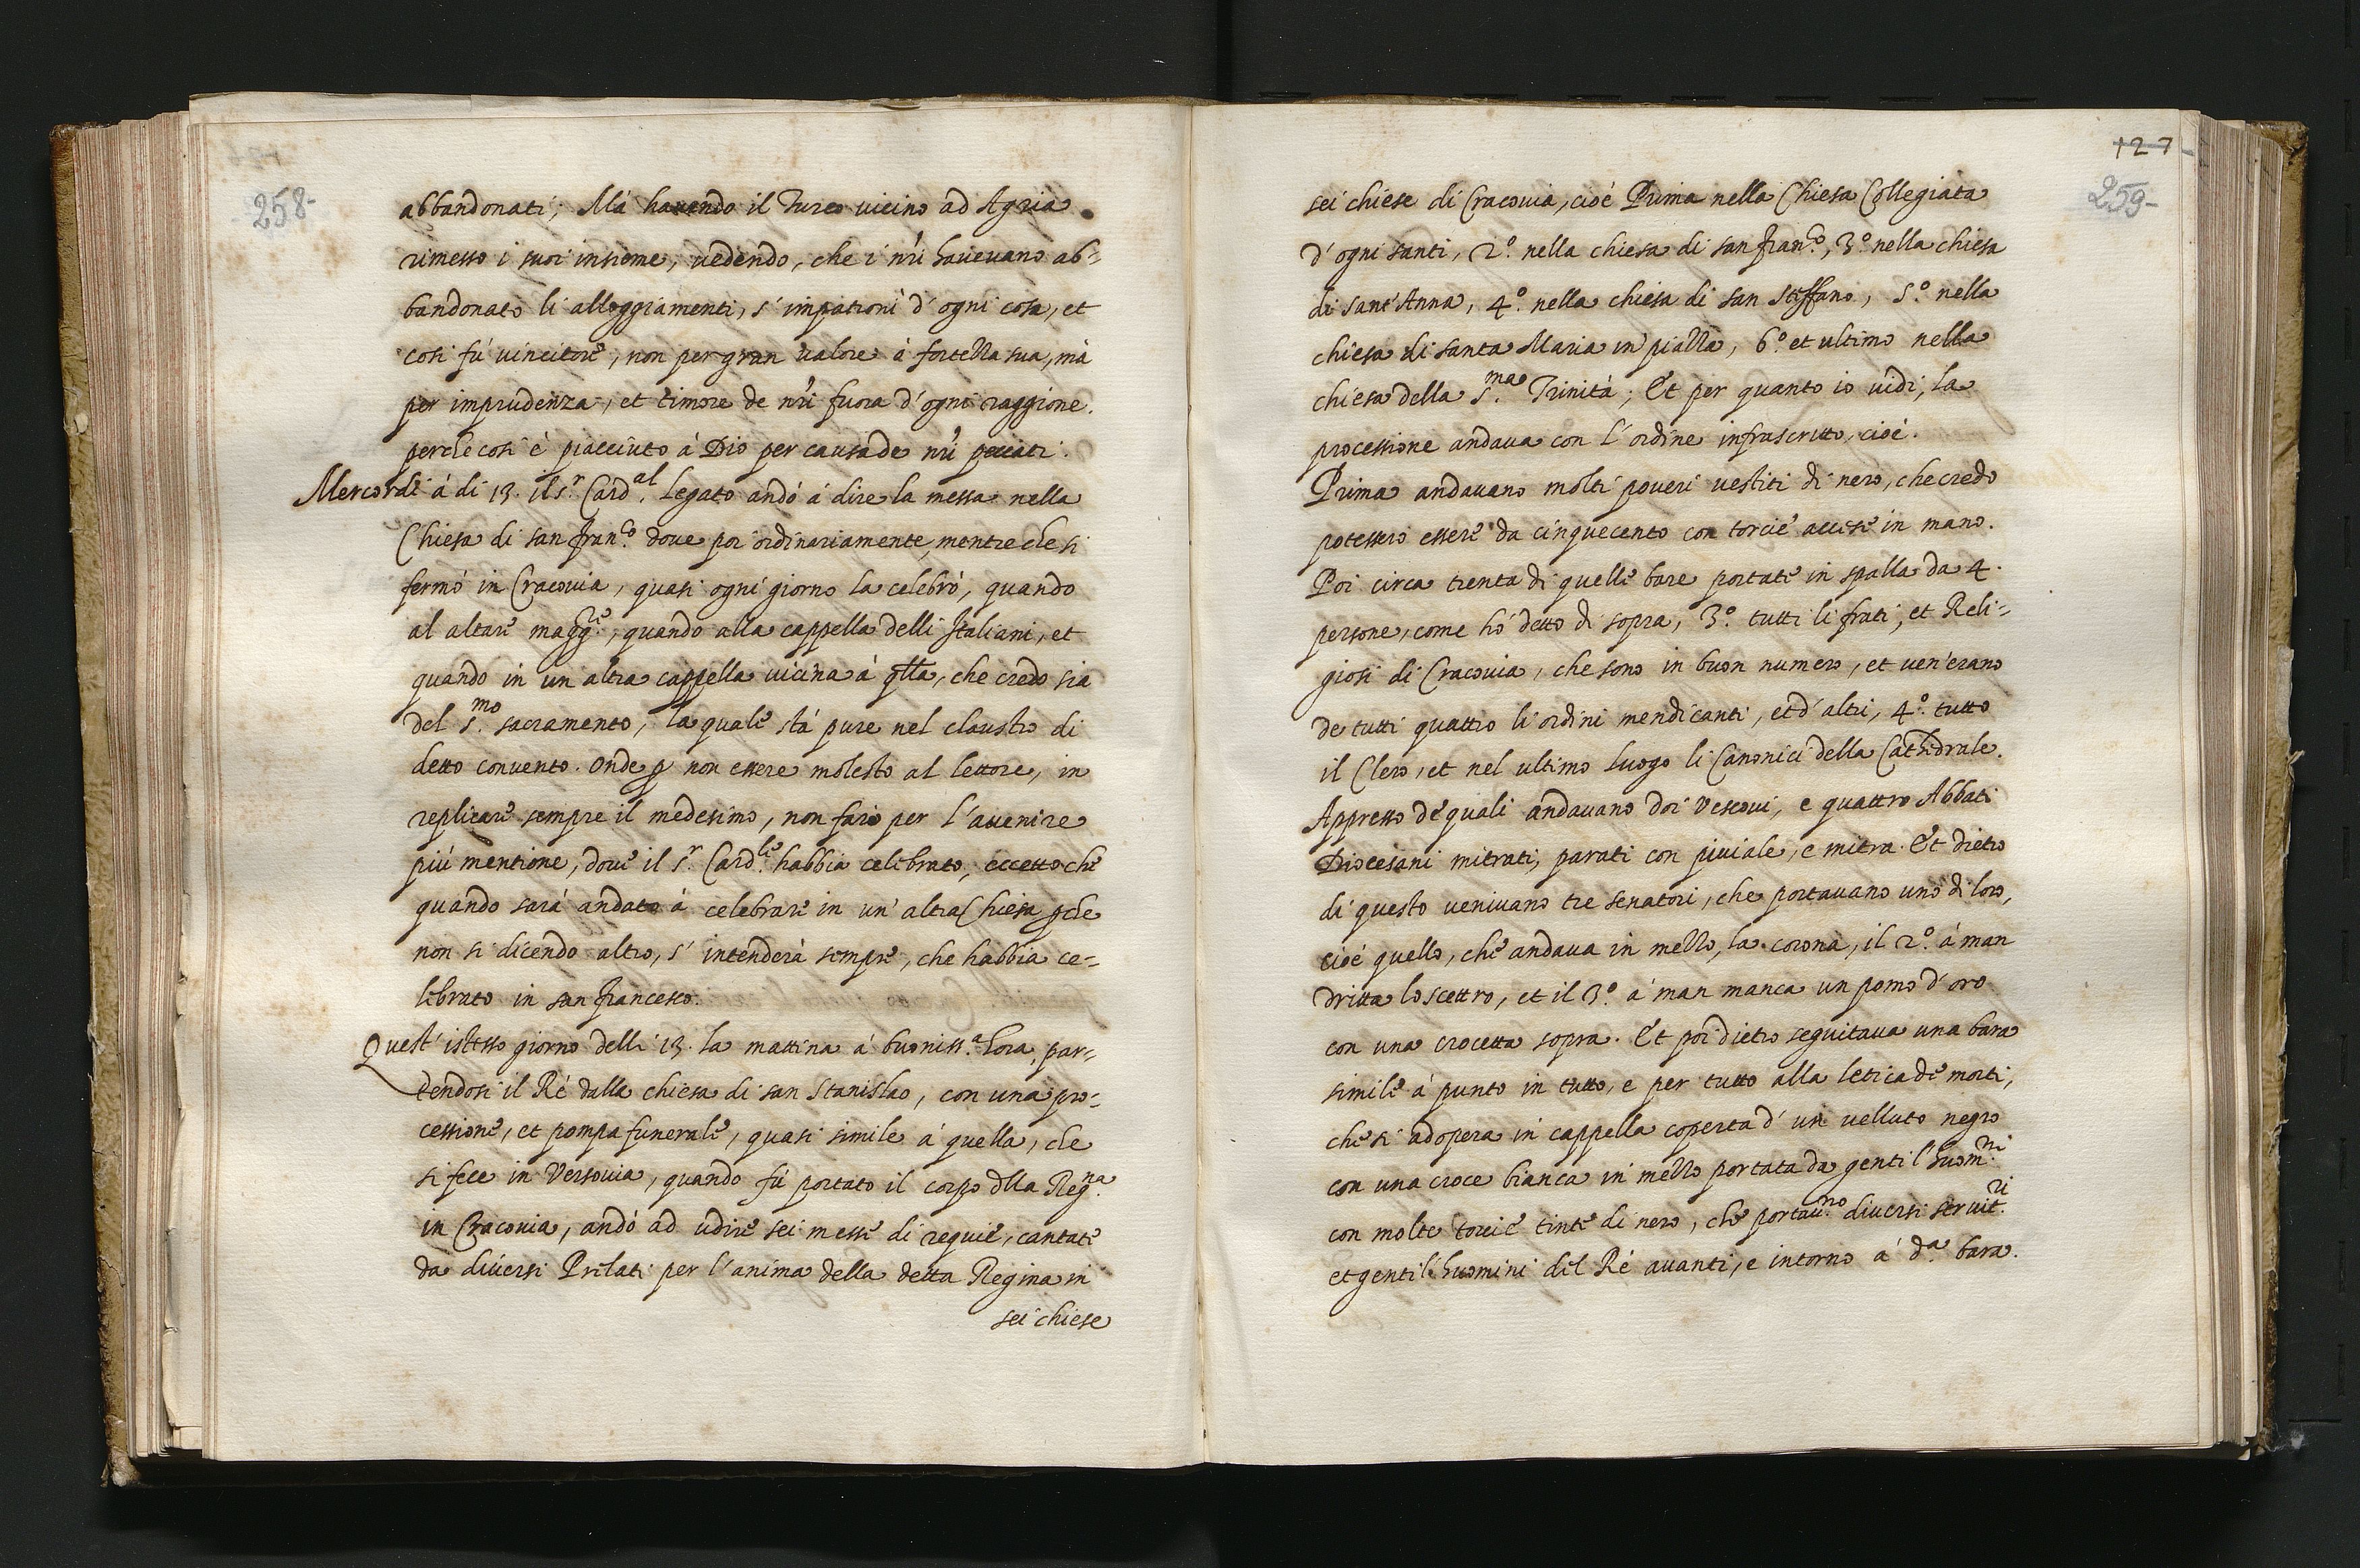 258-
abbandonati; Mà havendo il Turco vicino ad Agria
rimesso i suoi insieme, vedendo, che i nri havevano ab-
bandonato li alloggiamenti, s'impatronì d'ogni cosa, et
così fù vincitore, non per gran valore à fortezza sua, mà
per imprudenza, et timore de nri fuora d'ogni raggione.
perche così è piacciuto à Dio per causa de nri peccati.
Mercordì à di 13. il s.r Card.al Legato andò à dire la messa nella
Chiesa di san Fran.co dove poi ordinariamente, mentre che si
fermò in Cracovia, quasi ogni giorno la celebrò, quando
al altare magg.re, quando alla cappella delli Italiani, et
quando in un altra cappella vicina à qlla, che credo sia
del s.mo sacramento, la quale stà pure nel claustro di
detto convento. Onde p non essere molesto al lettore, in
replicare sempre il medesimo, non farò per l'avenire
più mentione, dove il s.r Card.le habbia celebrato, eccetto che
quando sarà andato à celebrare in un' altra Chiesa pche
non si dicendo altro, s'intenderà sempre, che habbia ce-
lebrato in san Francesco.
Quest' istesso giorno delli 13. la mattina à buoniss.a hora, par-
tendosi il Rè dalla chiesa di san Stanislao, con una pro-
cessione, et pompa funerale, quasi simile à quella, che
si fece in Versovia, quando fù portato il corpo dlla Reg.na
in Cracovia, andò ad udire sei messe di requie, cantate
da diversi Prelati per l'anima della detta Regina in
sei chiese
127
259-
sei chiese di Cracovia, cioè Prima nella Chiesa Collegiata
d'ogni santi, 2.o nella chiesa di san Fran.co, 3.o nella chiesa
di sant'Anna, 4.o nella chiesa di san Steffano, 5.o nella
chiesa di santa Maria in piazza, 6.o et ultimo nella
chiesa della s.ma Trinità; Et per quanto io vidi, la
processione andava con l'ordine infrascritto, cioè.
Prima andavano molti poveri vestiti di nero, che credo
potessero essere da cinquecento con torcie accese in mano.
Poi circa trenta di quelle bare portate in spalla da 4.
persone, come hò detto di sopra, 3.o tutti li frati, et Reli-
giosi di Cracovia, che sono in buon numero, et ven'erano
de tutti quattro li ordini mendicanti, et d'altri, 4.o tutto
il Clero, et nel ultimo luogo li Canonici della Cathedrale.
Appresso de quali andavano doi Vescovi, e quattro Abbati
Diocesani mitrati, parati con piviale, e mitra. Et dietro
di questo venivano tre senatori, che portavano uno di loro,
cioè quello, che andava in mezzo, la corona, il 2.o à man
dritta lo scettro, et il 3.o a man manca un pomo d'oro
con una crocetta sopra. Et poi dietro seguitava una bara
simile à punto in tutto, e per tutto alla letica de morti,
che si adopera in cappella coperta d'un velluto negro
con una croce bianca in mezzo portata da gentil'huom.ni
con molte torcie tinte di nero, che portav.no diversi servit.ri
et gentil'huomini del Rè avanti, e intorno à d.a bara.